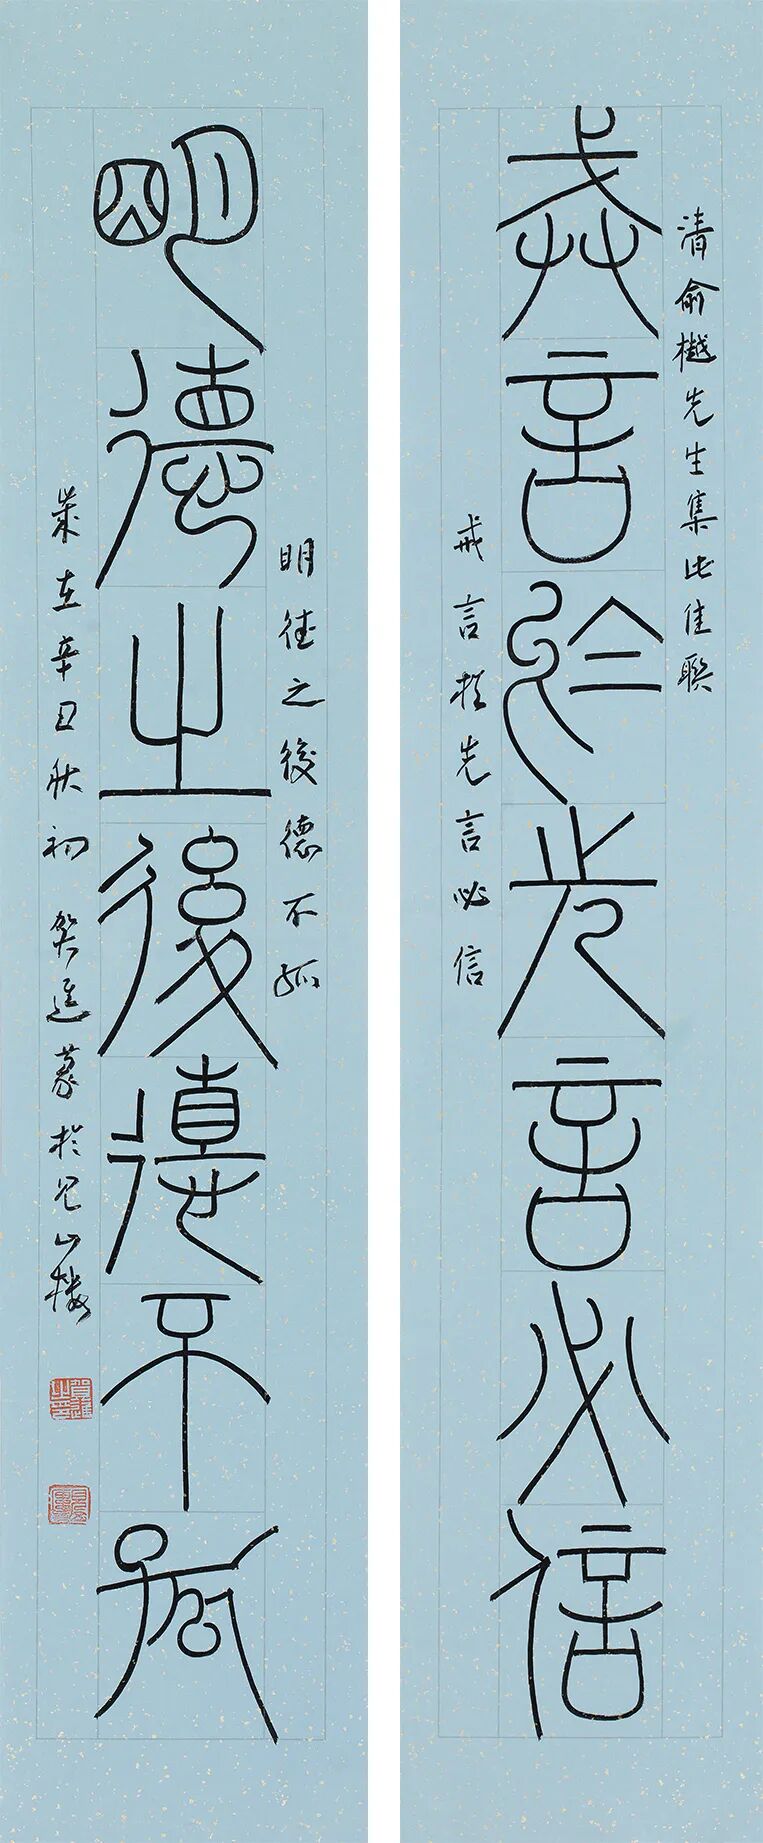 清俞樾先生集此佳聯
戒言於先言必信
戒言於先言必信
明德之後德不孤
明德之後德不孤
歲在辛丑秋初 贺進篆於见山楼
賀進之印